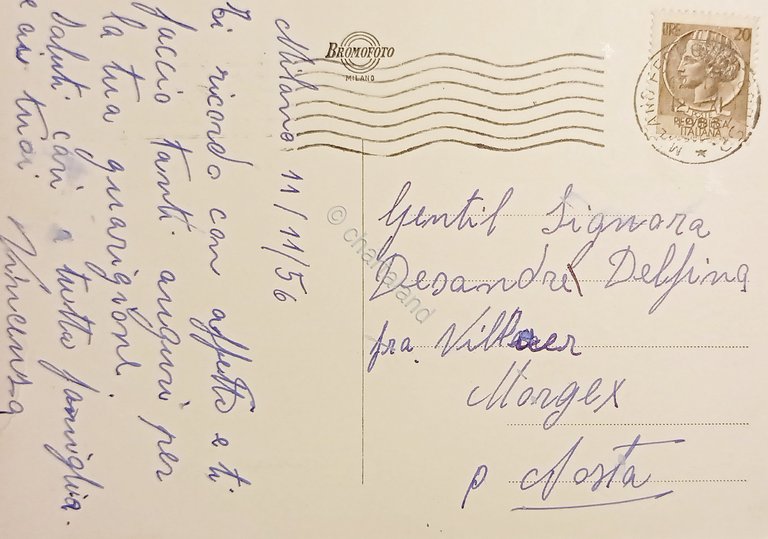 Milano 11/11/56
Ti ricordo con affetto e ti
faccio tanti auguri per
la tua guarigione.
Saluti cari a tutta famiglia.
e ai tuoi Vincenza
BROMOFOTO
MILANO
LIRE 20
ITALIANA
© chartaland
Gentil Signora
Desandré Delfina
fra. Villair
Morgex
p Aosta